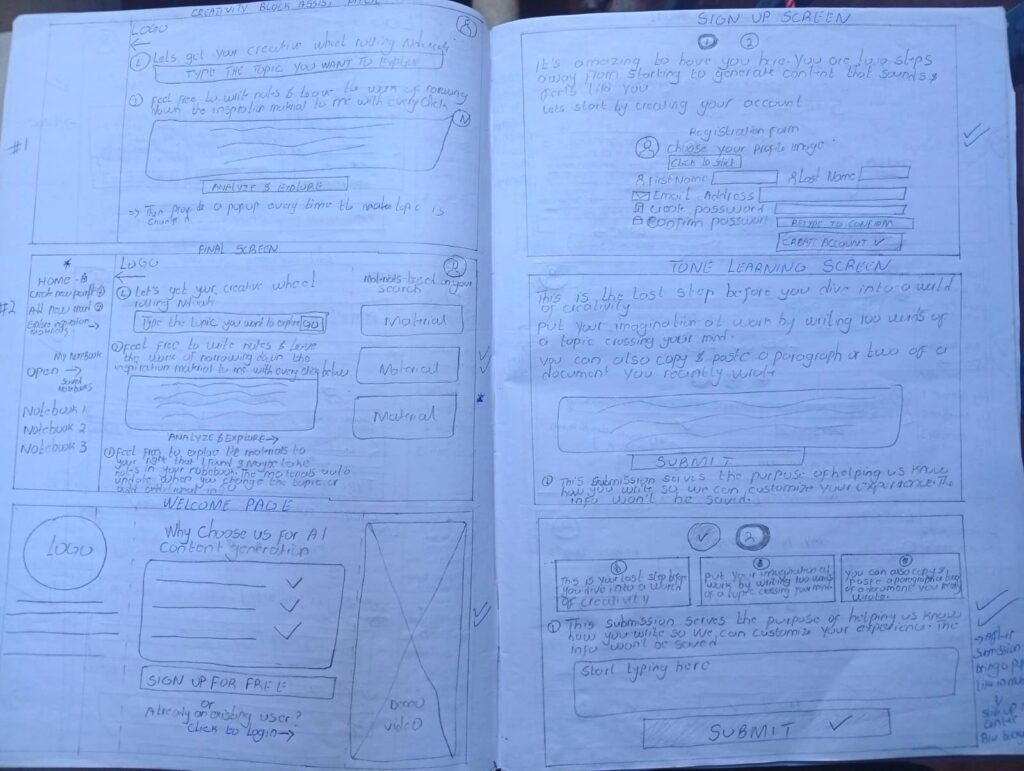 CREATIVITY BLOCK ASSIST
LOGO
Lets get your creative wheel rolling
TYPE THE TOPIC YOU WANT TO EXPLORE
Feel free to write notes & leave the work of narrowing
down the inspiration material to me with every click
N
#1
ANALYZE & EXPLORE
a popup every time the topic is
FINAL SCREEN
#2
HOME
Create new
Add new
Explore
materials →
My Notebook
OPEN →
Saved
Notebooks
Notebook 1
Notebook 2
Notebook 3
LOGO
Let's get your creative wheel
rolling
Type the topic you want to explore GO
Feel free to write notes & leave
the work of narrowing down the
inspiration material to me with every click below
ANALYZE & EXPLORE →
Feel free to explore the materials to
your right that I found & maybe take
notes in your notebook. The materials will
update when you change the topic or
add additional info
Materials based on your
search
Material
Material
Material
WELCOME PAGE
LOGO
Why Choose us for AI
Content generation
SIGN UP FOR FREE
or
Already an existing user?
Click to login →
Demo
video
SIGN UP SCREEN
1 2
It's amazing to have you here. You are two steps
away from starting to generate content that sounds &
feels like you
Lets start by creating your account
Registration form
Choose your profile image
Click to start
First Name Last Name
Email Address
Create password
Confirm password RETYPE TO CONFIRM
CREATE ACCOUNT
TONE LEARNING SCREEN
This is the last step before you dive into a world
of creativity
Put your imagination at work by writing 100 words of
a topic crossing your mind.
You can also copy & paste a paragraph or two of a
document you recently wrote
SUBMIT
This submission serves the purpose of helping us know
how you write so we can customize your experience. The
info won't be saved.
2
This is your last step before
you dive into a world
of creativity
Put your imagination at
work by writing 100 words
of a topic crossing your mind.
You can also copy &
paste a paragraph or two
of a document you recently
wrote.
This submission serves the purpose of helping us know
how you write so we can customize your experience. The
info won't be saved
Start typing here
SUBMIT
→ After
submission
bring a
like
sign up
center